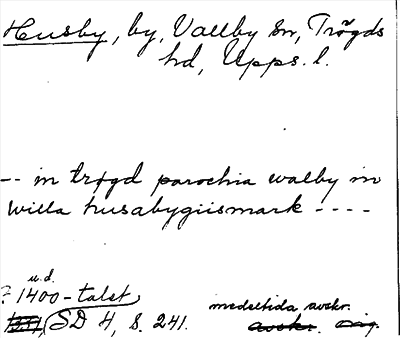 Husby, by, Vallby sn, Trögds
hd, Upps. l.
-- in trøgd parochia walby in
willa husabygiismark ----
u.d.
? 1400-talet
1331, SD 4, S. 241.
medeltida avskr.
avskr. orig.